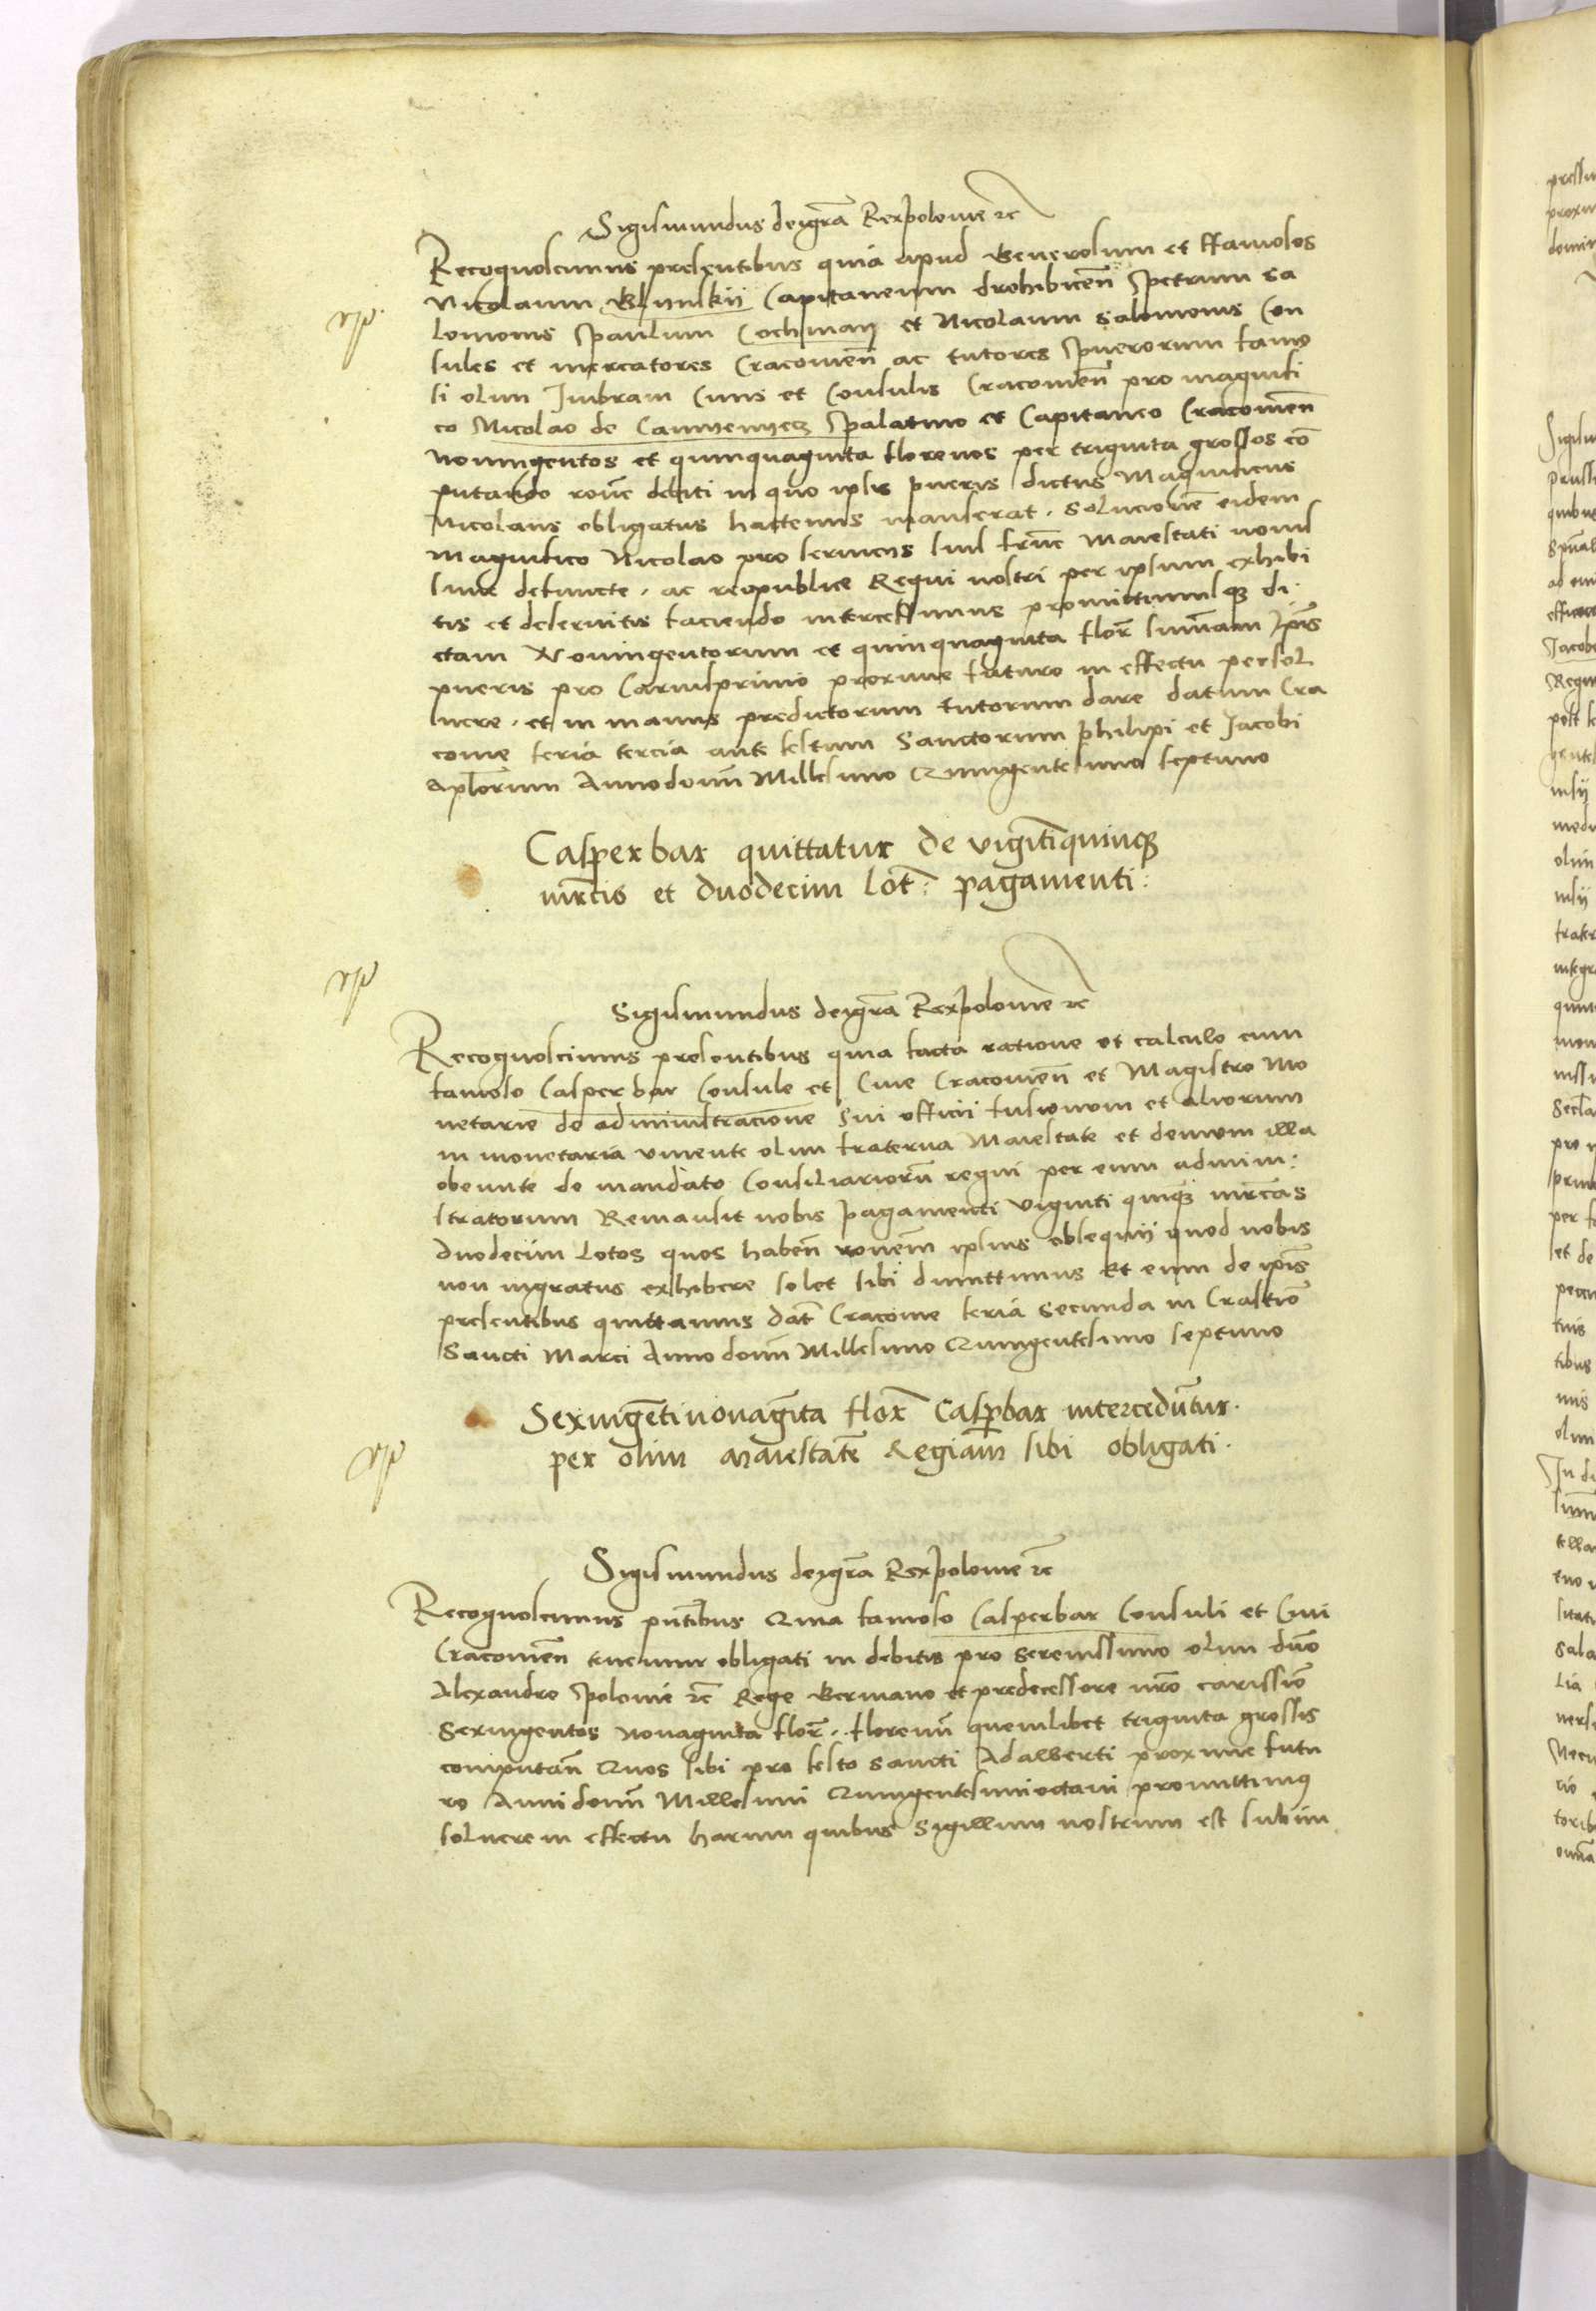 Sigismundus dei gr̃a Rex polonie ꝛc̃
Recognoscimus presentibus quia apud Generosum et ffamosos
Nicolaum Glynskij Capitaneum drohibicen̄ Petrum Sa
lomonis Paulum Cochman et Nicolaum Salomonis Con
sules et mercatores Cracovien̄ ac tutores Puerorum famo
si olim Imbram Civis et Consulis Cracovien̄ pro magnifi
co Nicolao de Camyenyecz Palatino et Capitaneo Cracovien̄
Noningentos et quinquaginta florenos per triginta grossos cō
putando rōne debiti in quo ipsis pueris dictus Magnificus
Nicolaus obligatus hactenus manserat. Solucionē eidem
Magnifico Nicolao pro serviciis sub frn̄e Maiestati
defuncte. ac reipublice Regni nostri per ipsum exhibi
tis et deservitis faciendo intercessimus promittimusqꝫ di
ctam Noningentorum et quinquaginta flor̃ summam Ip̄is
pueris pro Carnisprivio proxime futuro in effectu persol
vere. et in manus predictorum tutorum dare datum Cra
covie feria tercia ante festum Sanctorum philipi et Jacobi
Apl̄orum Anno domī Millesimo Quingentesimo septimo
Casper bar quittatur de vigītiquinqꝫ
mr̄cis et duodecim lot̄: pagamenti:
Sigismundus dei gr̃a Rex polonie ꝛc
Recognoscimus presentibus quia facta ratione et calculo cum
famoso Casper bar Consule et Cive Cracovien̄ et Magistro Mo
netarie de administracione sui officii fusionem et aliorum
in monetaria vivente olim fraterna Maiestate et demum illa
obeunte de mandato Consiliariorū regni per eum admini:
stratorum Remansit nobis pagamenti viginti quīqꝫ mr̄cas
duodecim Lotos quos haben̄ rōnem ipsius obsequij quod nobis
non ingratus exhibere solet sibi dimittimus Et eum de ip̄is
presentibus quittamus dat̄ Cracovie feria secunda in Crastīo
Sancti Marci Anno domī Millesimo Quingentesimo septimo
Sexingēti novagīta flor̄ Casp̱bar intercedūtur.
per olim Maiestatē Regiam̄ sibi obligati.
Sigismundus dei gr̃a Rex polonie ꝛc̄
Recognoscimus pn̄tibus Quia famoso Casperbar Consuli et Civi
Cracovien̄ tenemur obligati in debitis pro Serenissimo olim dn̄o
Alexandro Polonie ꝛc̄ Rege Germano et predecessore nr̄o carissīo
Sexingentos nonaginta flor̄. florenū quemlibet triginta grossis
computān Quos sibi pro festo Sancti Adalberti proxime futu
ro Anni domī Millesimi Quingentesimi octavi promittimꝰ
solvere in effectu harum quibus Sigillum nostrum est subim